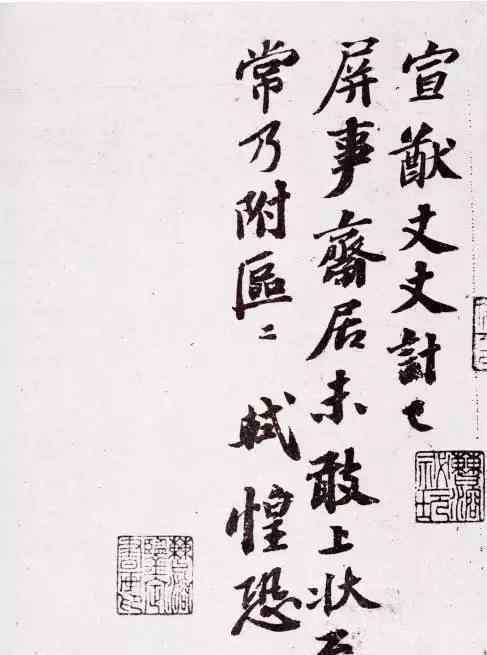 宣猷丈丈計已
屏事齋居未敢上狀
常乃附區〻 軾惶恐